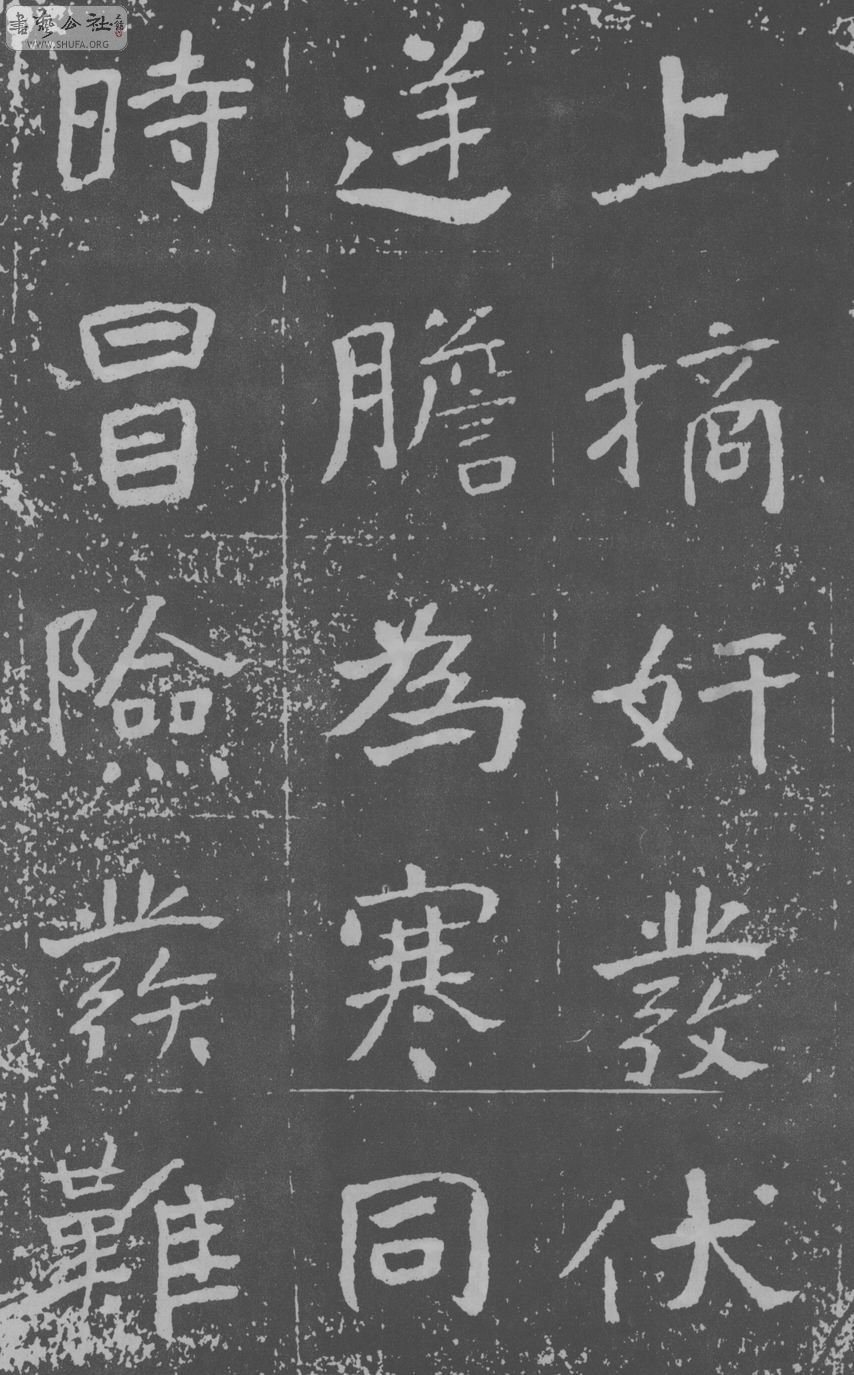 上摘奸發伏
逆膽為寒同
時冒險發難
書藝公社
WWW.SHUFA.ORG